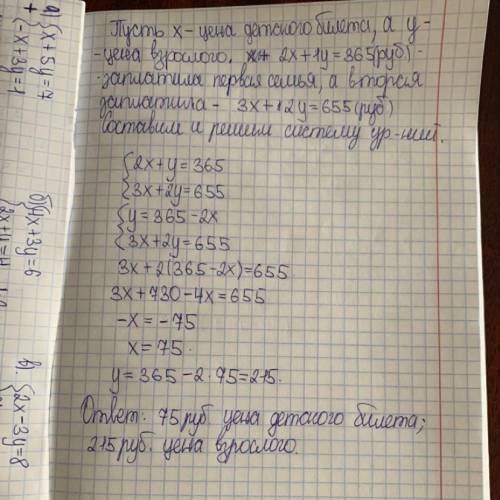 Пусть x - цена детского билета, а y-
-цена взрослого. 2x+1y=365(руб)-
-заплатила первая семья, а вторая
заплатила - 3x+12y=655(руб)
Составим и решим систему ур-ний.
{2x+y=365
{3x+2y=655
{y=365-2x
{3x+2y=655
3x+2(365-2x)=655.
3x+730-4x=655
-x=-75
x=75.
y=365-2.75=215.
Ответ: 75руб. цена детского билета;
215руб. цена взрослого.
а) {x+5y=7
+ {-x+3y=1
б) {4x+3y=6
{2x+y=4
в). {2x-3y=8